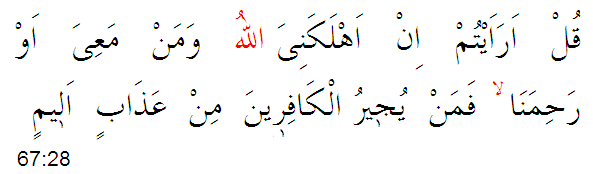 قُلْ اَرَاَيْتُمْ اِنْ اَهْلَكَنِىَ اللّٰهُ وَمَنْ مَعِىَ اَوْ
رَحِمَنَا ۙ فَمَنْ يُج۪يرُ الْكَافِر۪ينَ مِنْ عَذَابٍ اَل۪يمٍ
67:28